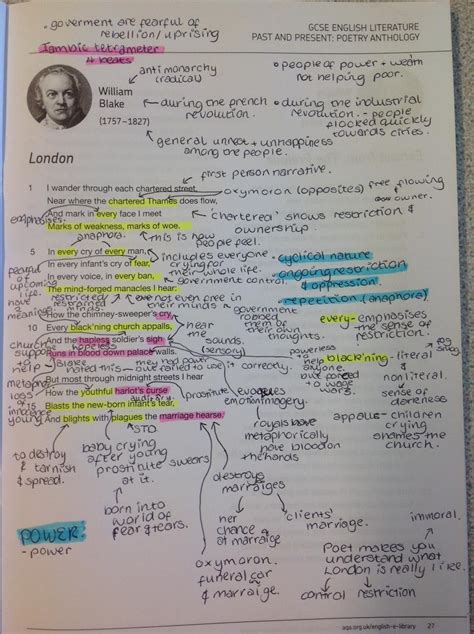 • goverment are fearful of
rebellion/uprising
Iambic tetrameter
4 beats
GCSE ENGLISH LITERATURE
PAST AND PRESENT: POETRY ANTHOLOGY
anti monarchy
(radical)
• people of power + wealth
not helping poor.
William
Blake
(1757–1827)
during the french
revolution.
• during the industrial
revolution. - people
flocked quickly
towards cities.
general unrest + unhappiness
among the people.
London
first person narrative.
1 I wander through each chartered street,
oxymoron (opposites) free flowing
owner.
Near where the chartered Thames does flow,
And mark in every face I meet
'chartered' shows restriction &
ownership.
emphasises.
Marks of weakness, marks of woe.
anaphora.
this is how
people feel.
5 In every cry of every man,
includes everyone
• cyclical nature
In every infant's cry of fear,
crying for
their whole life.
ongoing restriction
& oppression.
In every voice, in every ban,
government control
The mind-forged manacles I hear:
repetition (anaphora)
fearful
of
upcoming
life.
restricted/
restrained
not even free in
their minds
government
robbed
them of
their own
thoughts.
How the chimney-sweeper's cry
10 Every black'ning church appalls,
hear
me
every - emphasises
the sense of
restriction.
hopeless
And the hapless soldier's sigh
sounds
(sensory)
church
support
help
Runs in blood down palace walls.
Blake
hated this
powerless
to help
anyone
black'ning - literal
&
nonliteral.
But most through midnight streets I hear
How the youthful harlot's curse
prostitute
evogates
emotion/imagery.
sense of
darkness
loss
of
innocence
young
15 Blasts the new-born infant's tear,
And blights with plagues the marriage hearse.
STD
royals have
metaphorically
have blood on
the hands
appals - children
crying
shames the
church.
to destroy
& tarnish
& spread.
baby crying
after young
prostitute swears
at it.
destroys
marraiges
born into
world of
fear & tears.
her
chance
at
marraige
clients'
marriage.
immoral.
POWER:
- power
oxymoron
funeral car
& marraige
Poet makes you
understand what
London is really like.
control restriction
aqa.org.uk/english-e-library 27